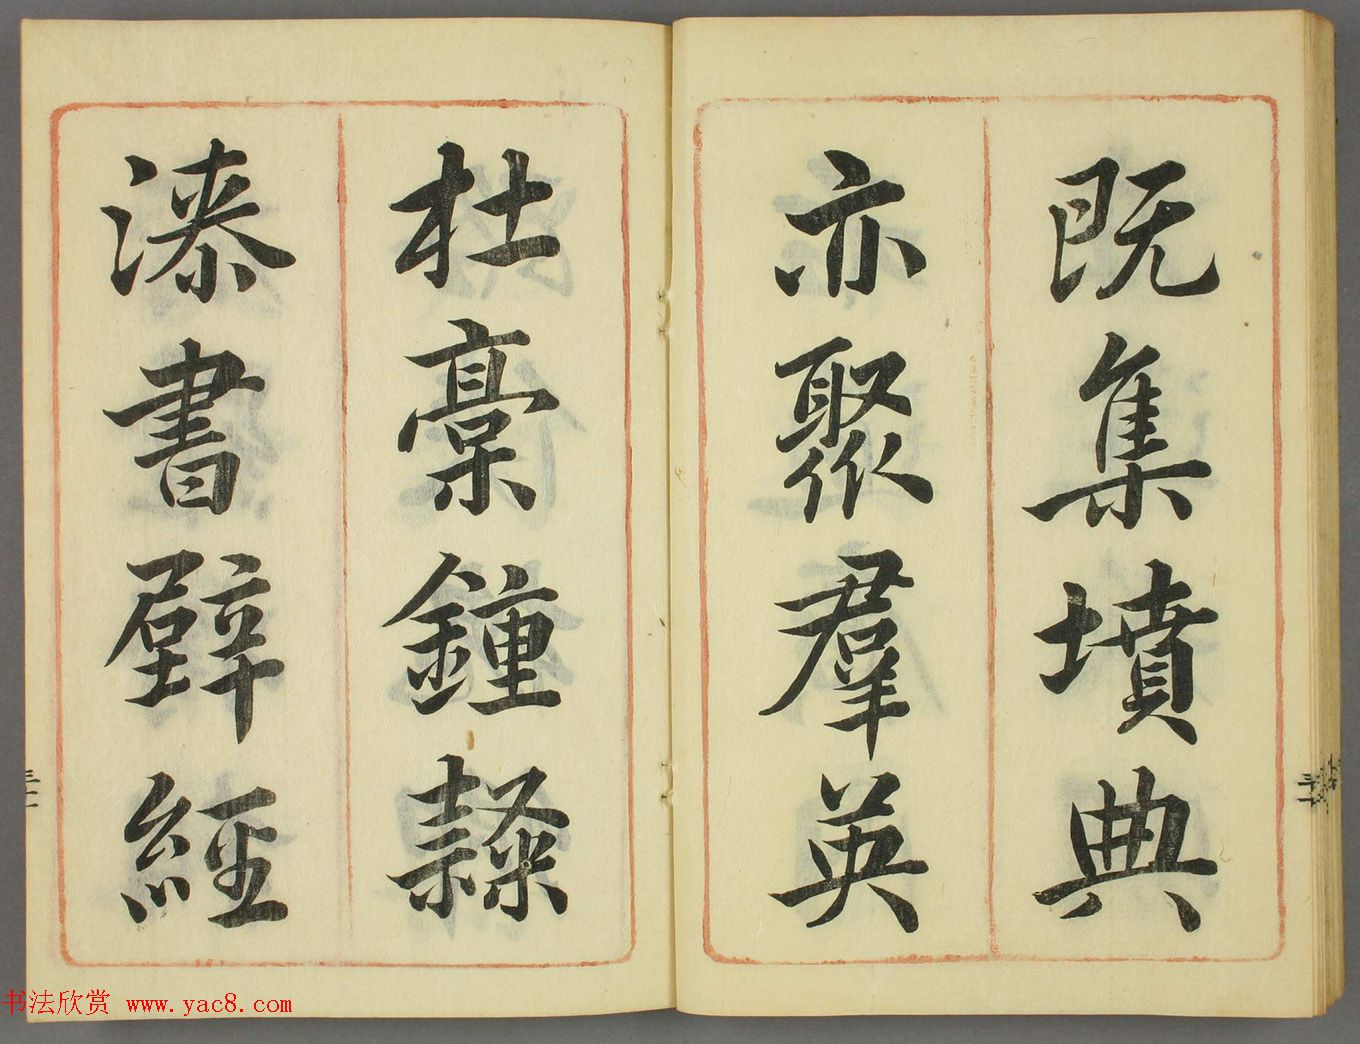 既集墳典
亦聚羣英
杜稾鍾隸
漆書壁經
三十一
書法欣赏 www.yac8.com